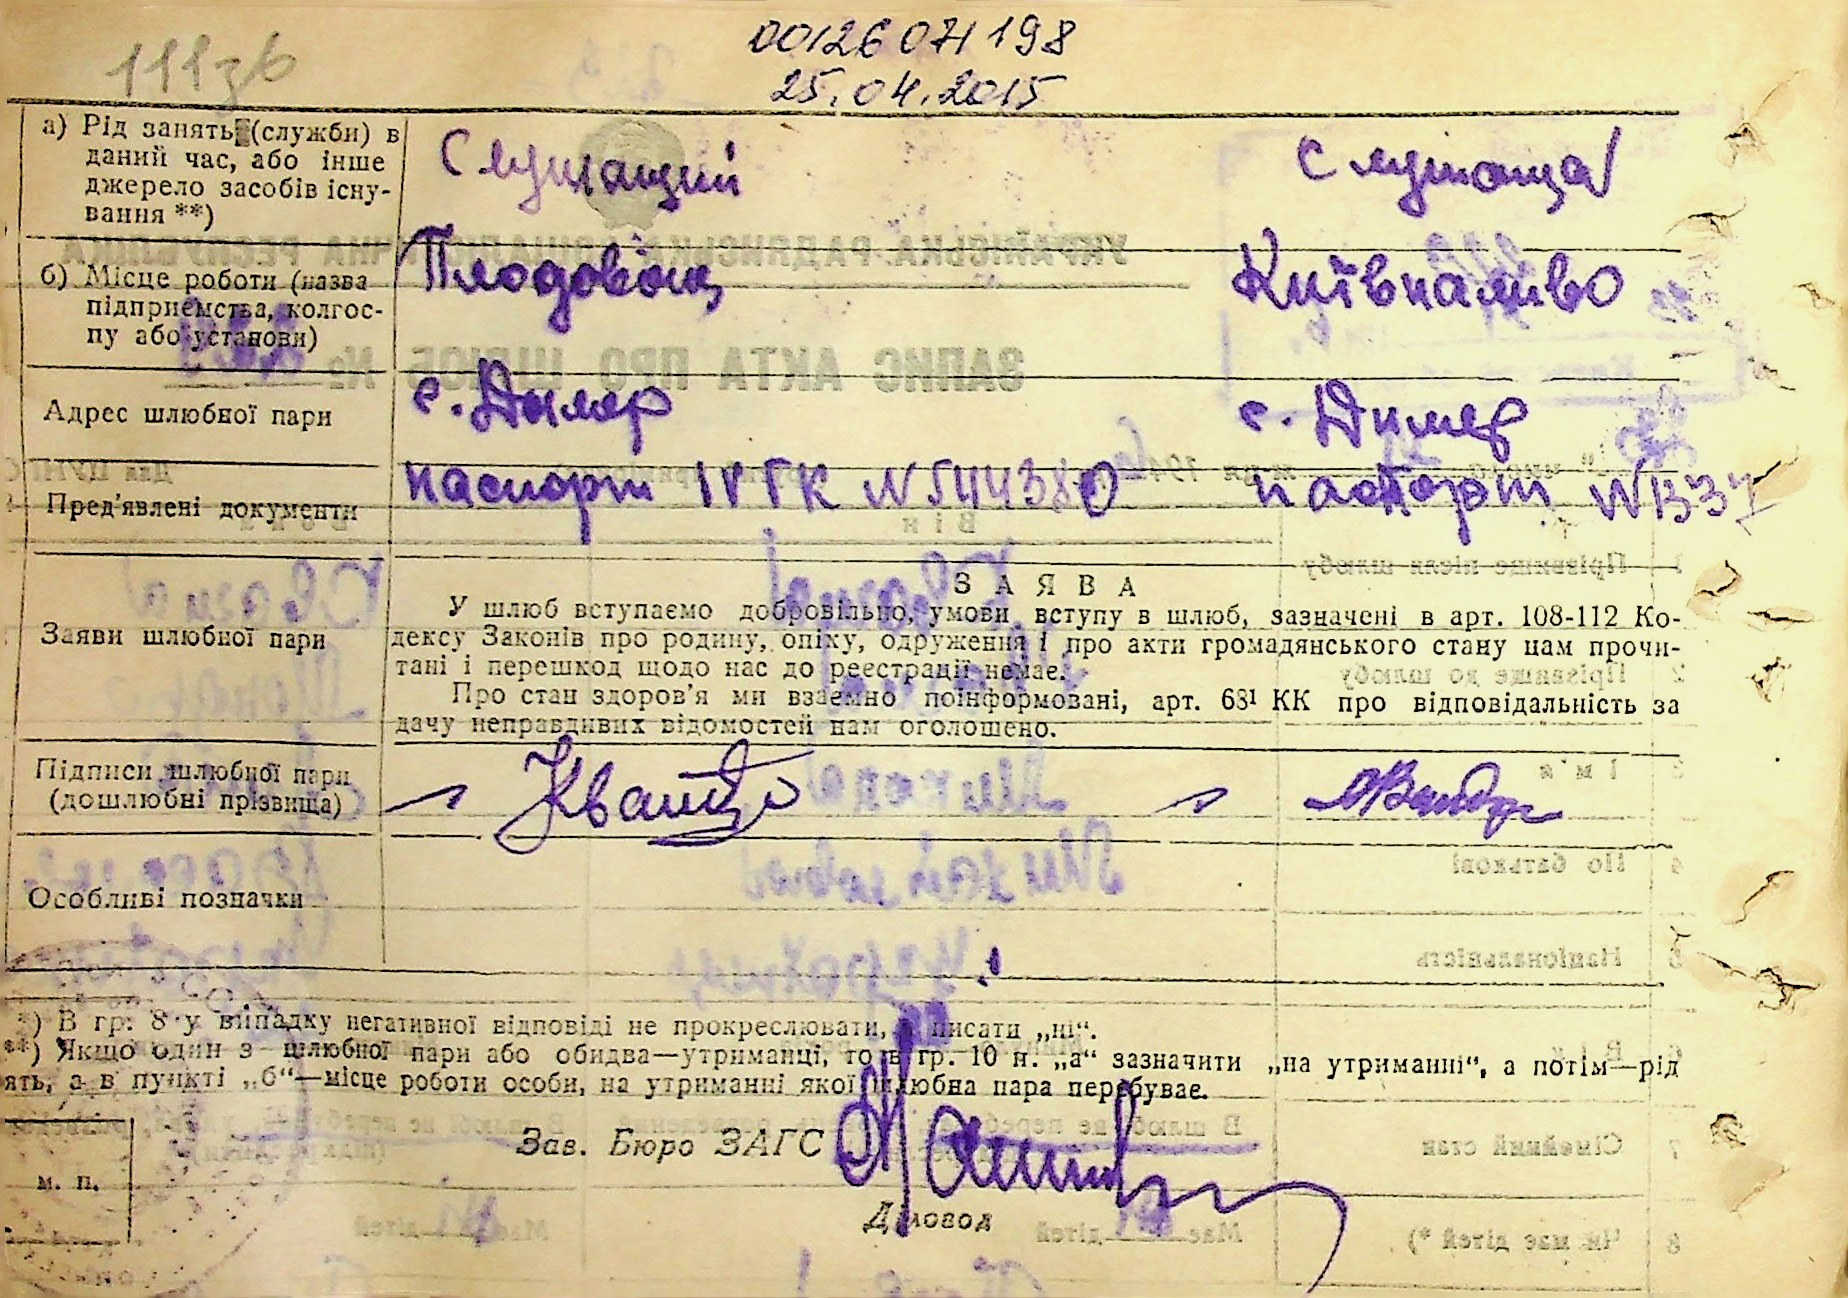 111зв
00126071198
25.04.2015
а) Рід занять (служби) в даний час, або інше джерело засобів існування **)
Служащий
Служаща
б) Місце роботи (назва підприємства, колгоспу або установи)
Плодовощ
Київпаливо
Адрес шлюбної пари
с. Дымер
с. Димер
Пред'явлені документи
паспорт IV ГК N 544380
паспорт N
Заяви шлюбної пари
ЗАЯВА
У шлюб вступаємо добровільно, умови вступу в шлюб, зазначені в арт. 108-112 Ко-
дексу Законів про родину, опіку, одруження і про акти громадянського стану нам прочи-
тані і перешкод щодо нас до реєстрації немає.
Про стан здоров'я ми взаємно поінформовані, арт. 68¹ КК про відповідальність за
дачу неправдивих відомостей нам оголошено.
Підписи шлюбної пари
(дошлюбні прізвища)
Кваша
Особливі позначки
*) В гр. 8 у випадку негативної відповіді не прокреслювати, а писати „ні“.
**) Якщо один з шлюбної пари або обидва—утриманці, то в гр. 10 п. „а“ зазначити „на утриманні“, а потім—рід
ять, а в пункті „б“—місце роботи особи, на утриманні якої шлюбна пара перебуває.
Зав. Бюро ЗАГС
м. п.
Діловод